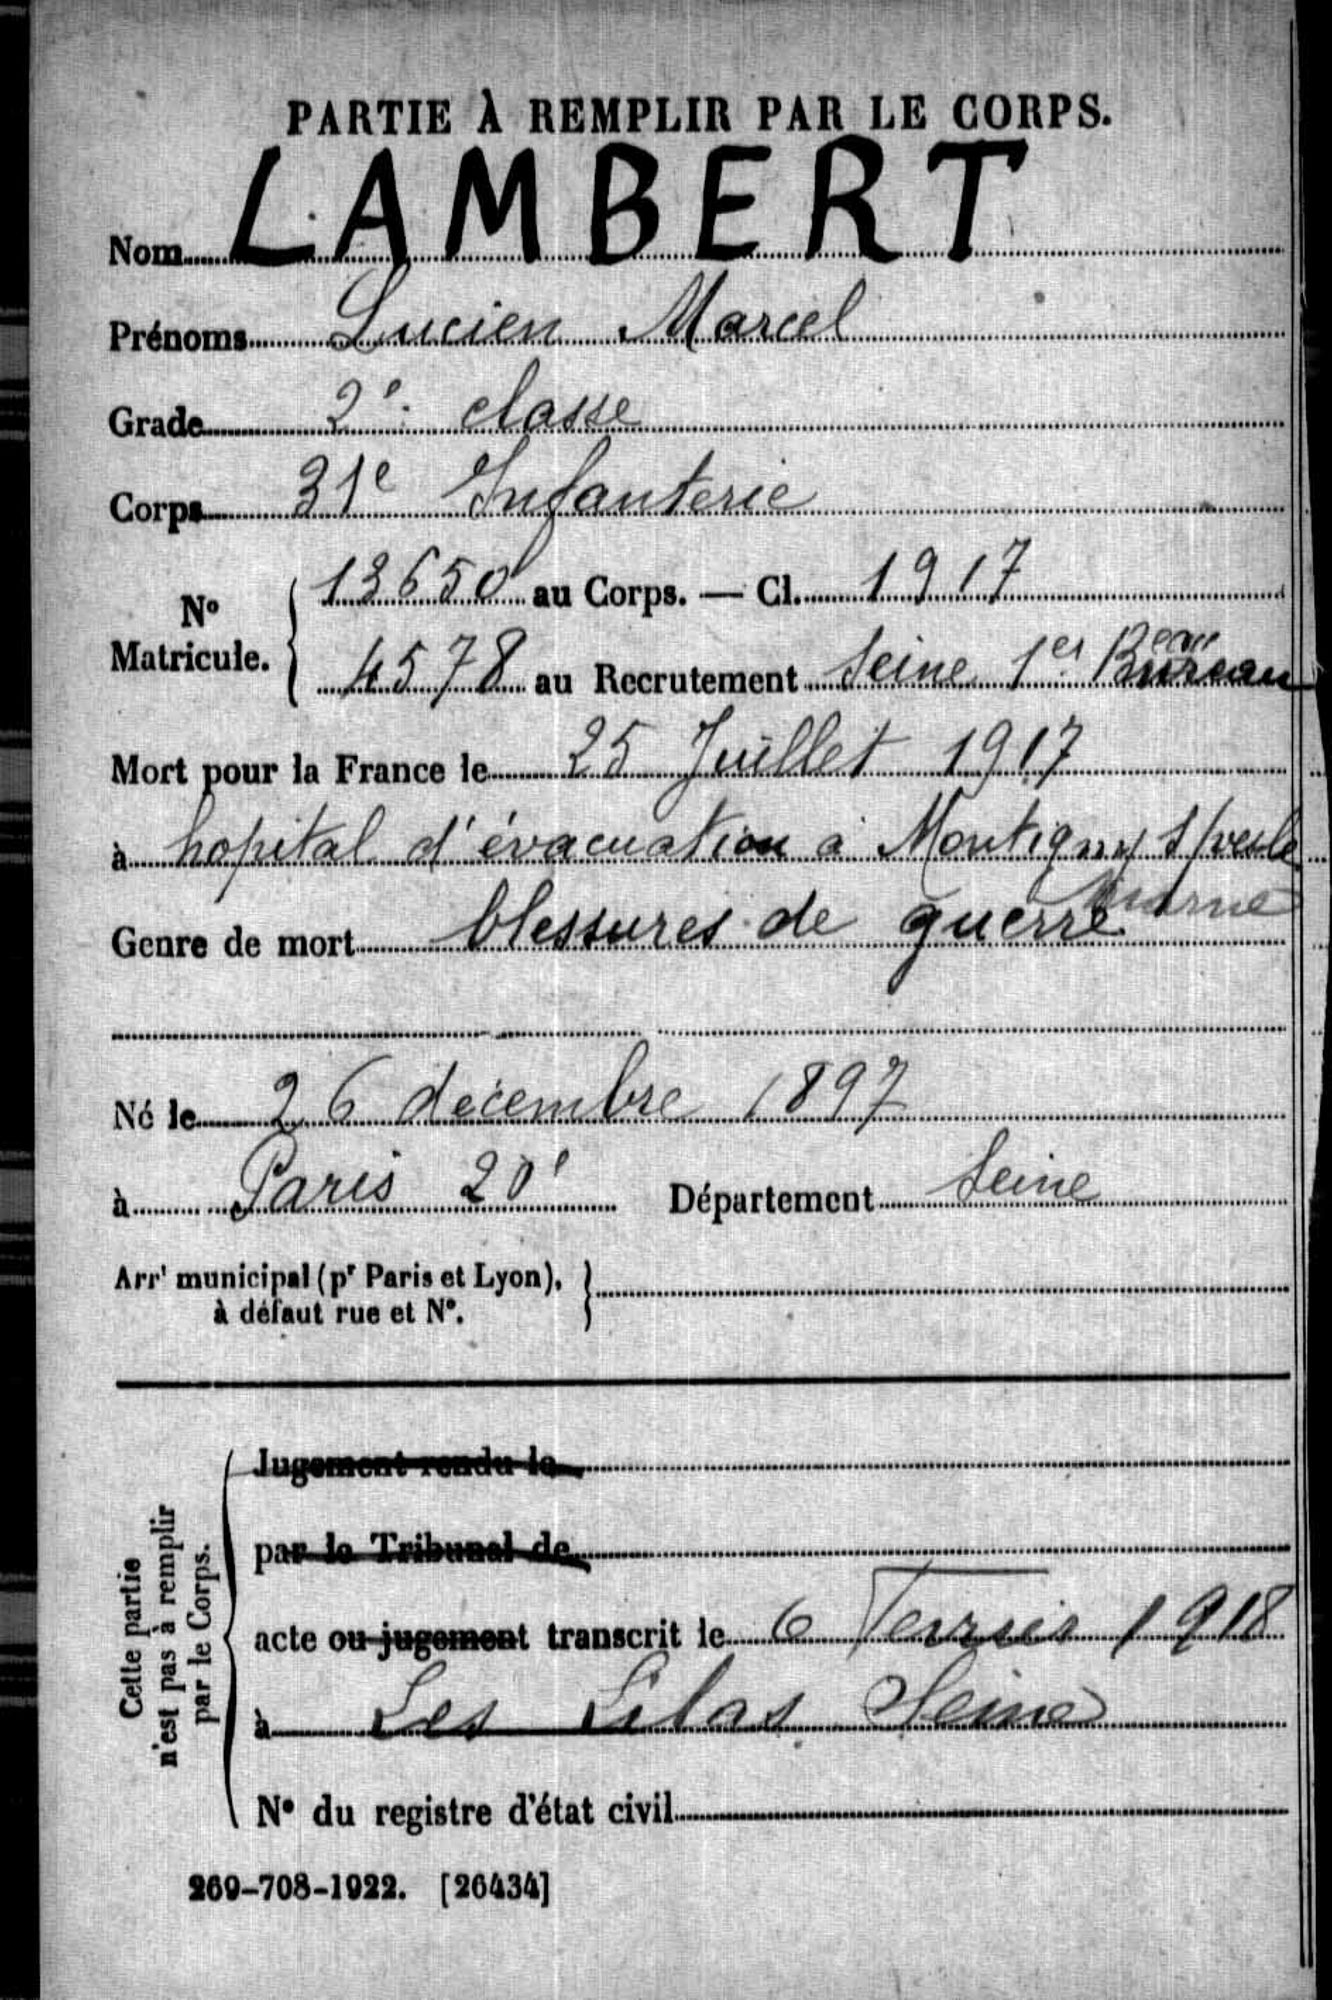 PARTIE À REMPLIR PAR LE CORPS.
Nom LAMBERT
Prénoms Lucien Marcel
Grade 2e classe
Corps 31e Infanterie
No Matricule. { 13650 au Corps. — Cl. 1917
4578 au Recrutement Seine 1er Bureau
Mort pour la France le 25 Juillet 1917
à hopital d'évacuation à Montigny s/vesle
Marne
Genre de mort blessures de guerre
Né le 26 décembre 1897
à Paris 20e Département Seine
Arrt municipal (pr Paris et Lyon), }
à défaut rue et No.
Cette partie n'est pas à remplir par le Corps.
Jugement rendu le
par le Tribunal de
acte ou jugement transcrit le 6 Fevrier 1918
à Les Lilas Seine
No du registre d'état civil
269-708-1922. [26434]